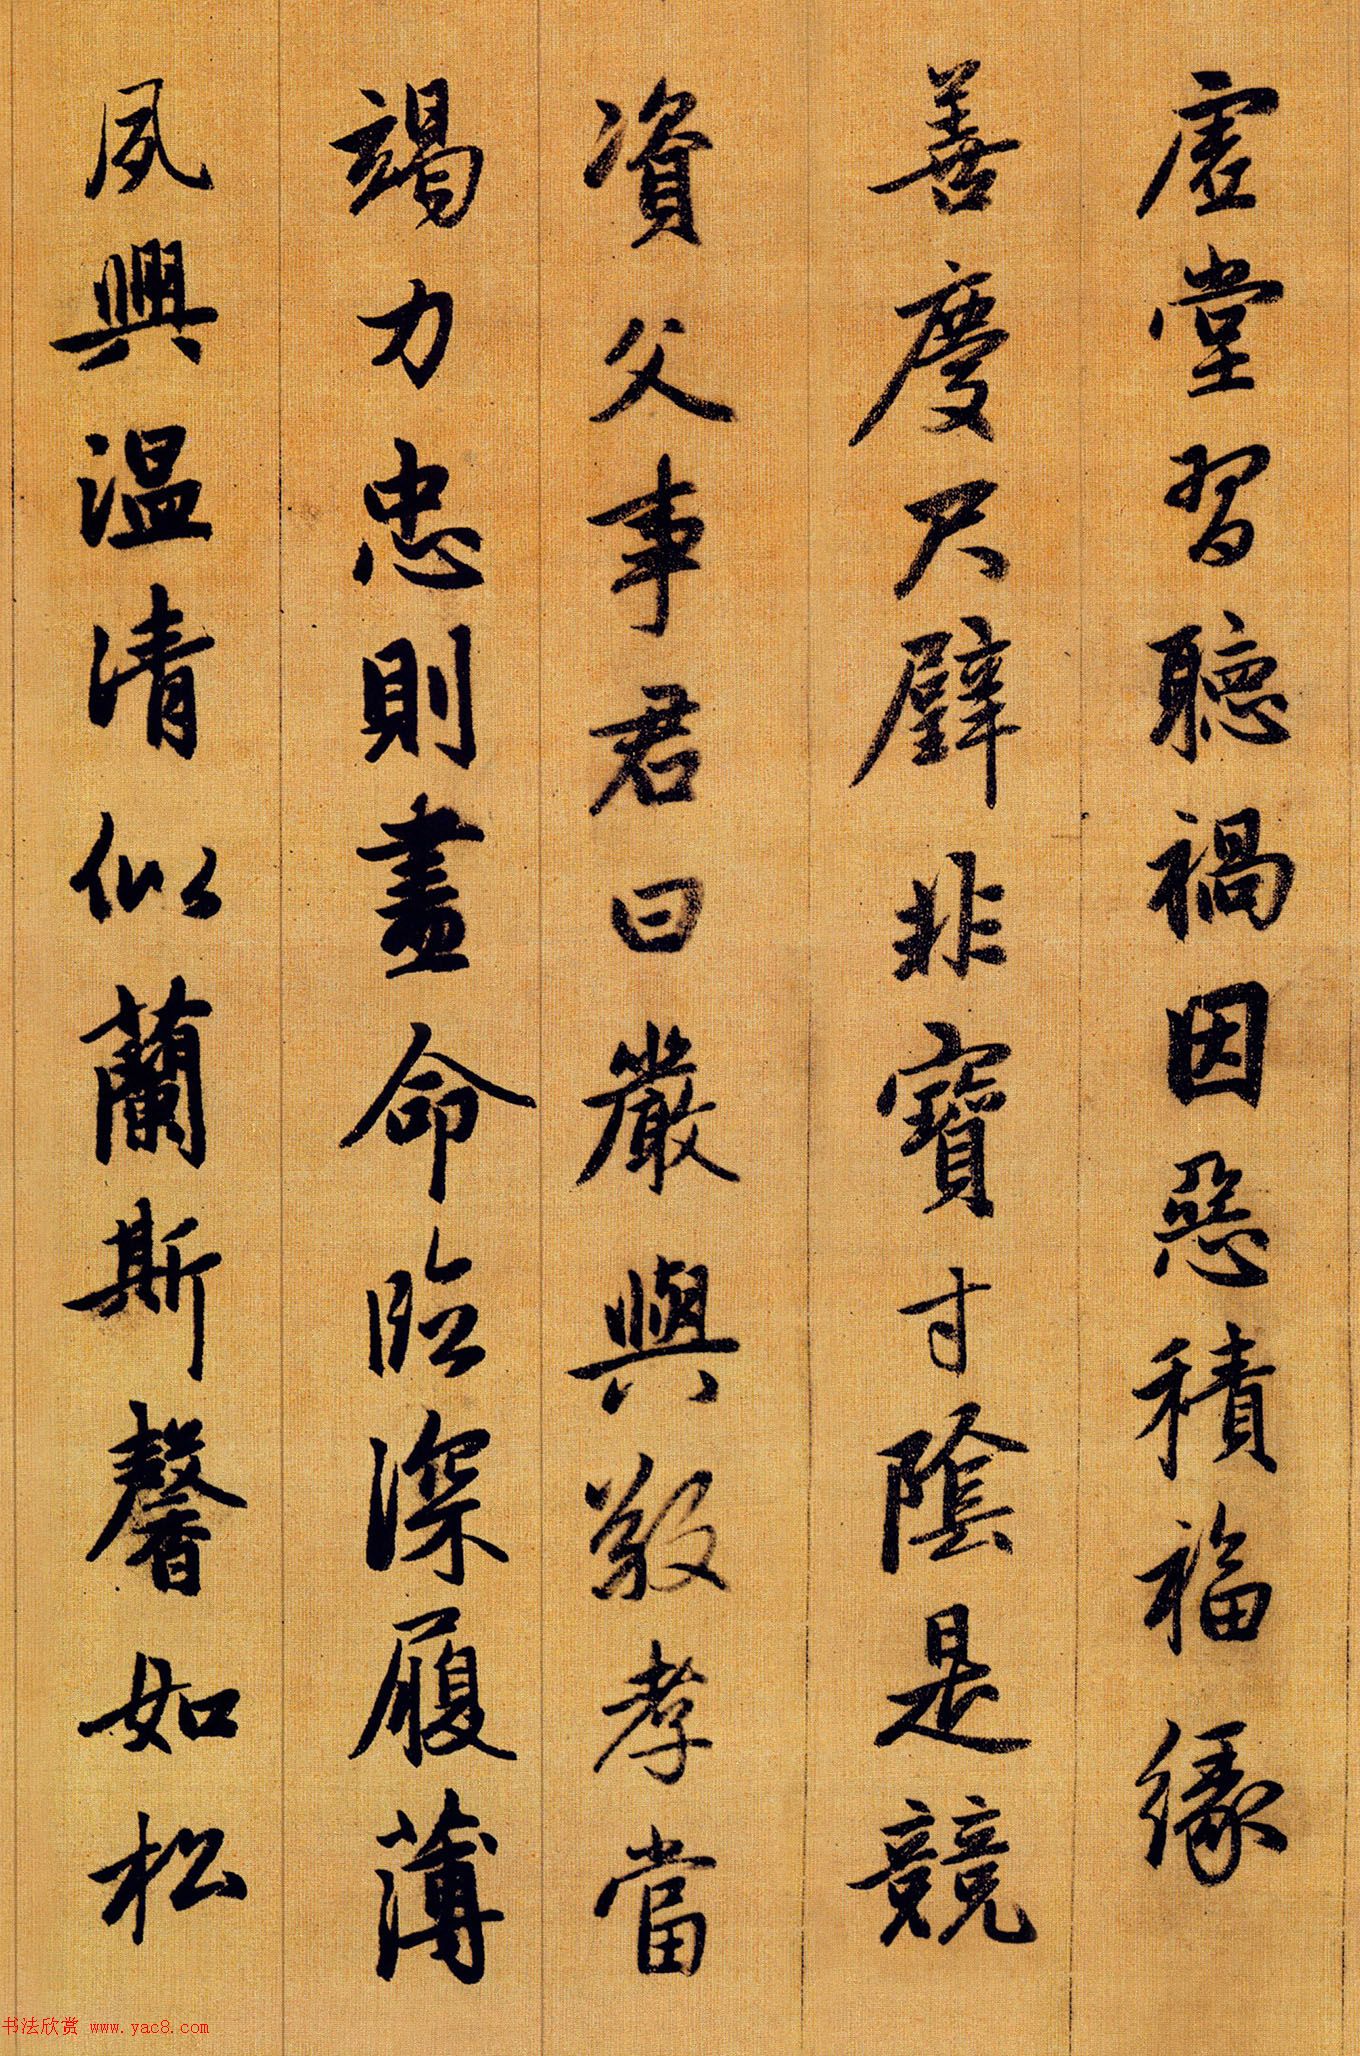 虛堂習聽禍因惡積福緣
善慶尺璧非寶寸陰是競
資父事君曰嚴與敬孝當
竭力忠則盡命臨深履薄
夙興温清似蘭斯馨如松
书法欣赏 www.yac8.com